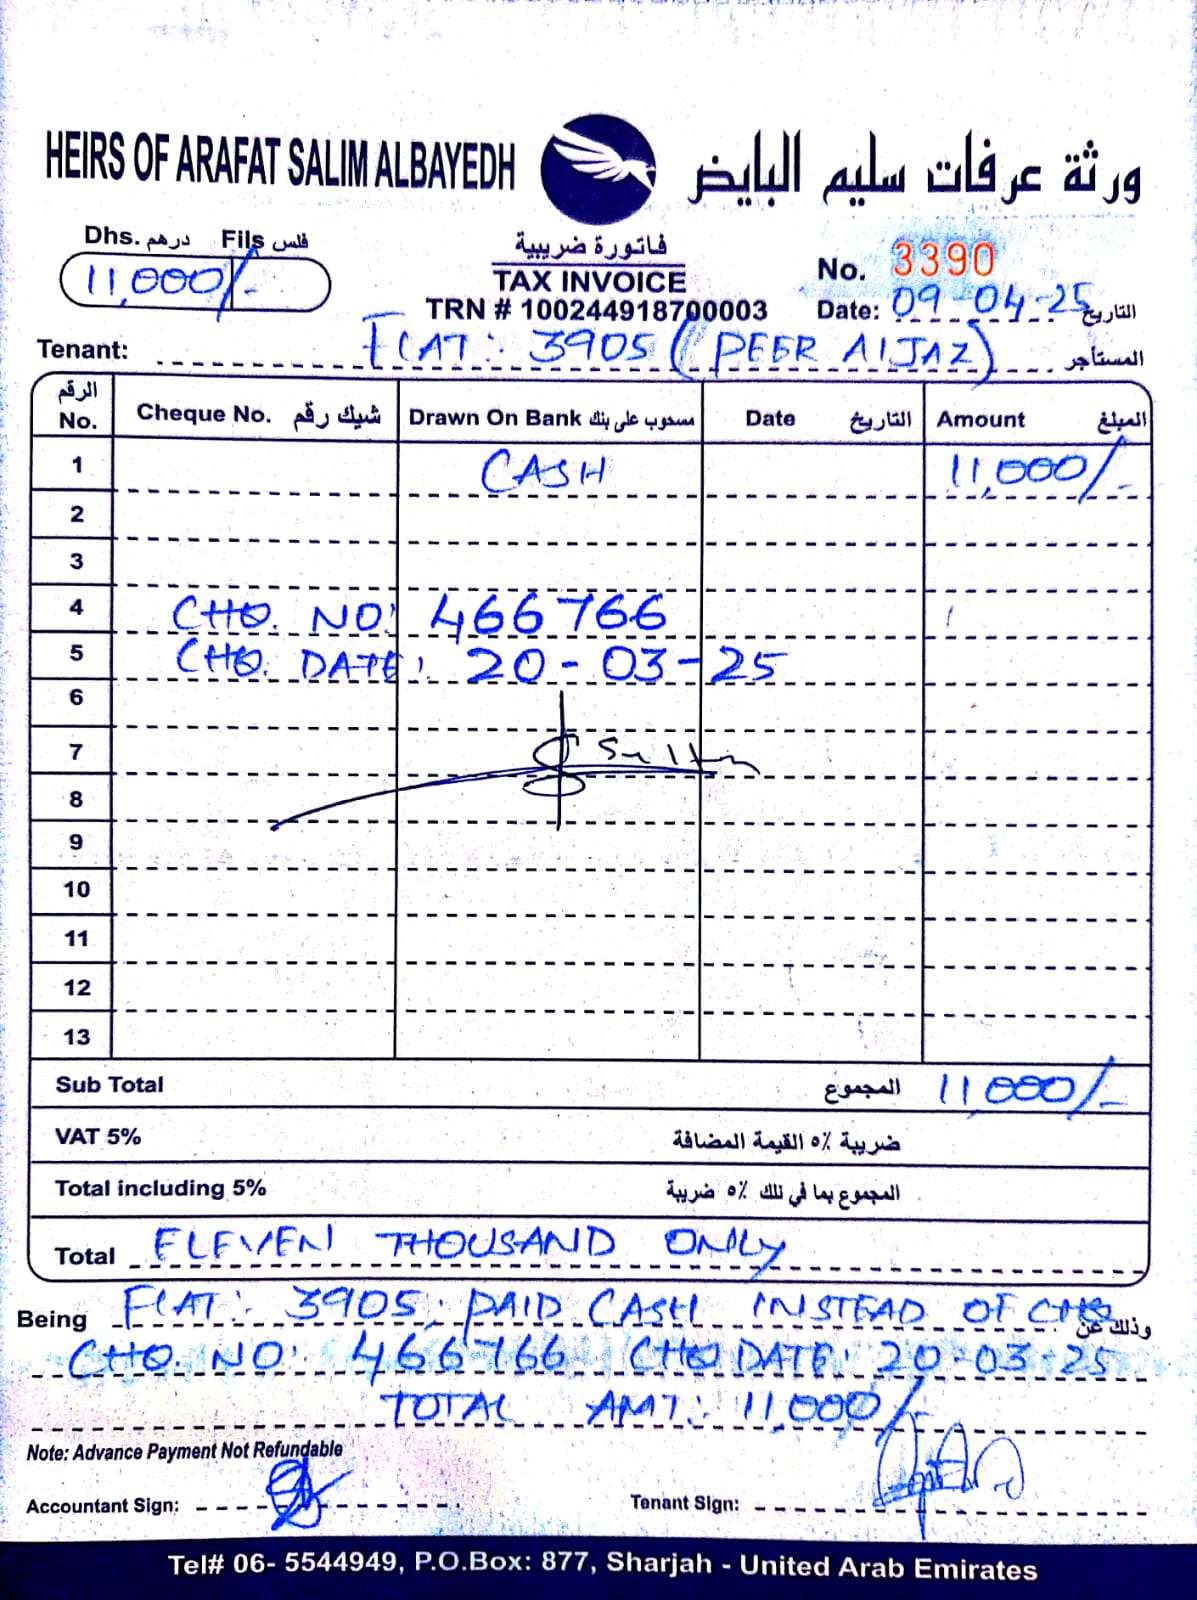 HEIRS OF ARAFAT SALIM ALBAYEDH ورثة عرفات سليم البايض
Dhs. درهم Fils فلس
11,000/-
فاتورة ضريبية
TAX INVOICE
TRN # 100244918700003
No. 3390
Date: 09-04-25 التاريخ
Tenant: FLAT: 3905 (PEER AIJAZ) المستأجر
الرقم No. Cheque No. شيك رقم Drawn On Bank مسحوب على بنك Date التاريخ Amount المبلغ
1 CASH 11,000/-
2
3
4 CHQ. NO: 466766
5 CHQ. DATE: 20-03-25
6
7
8
9
10
11
12
13
Sub Total المجموع 11,000/-
VAT 5% ضريبة ٥٪ القيمة المضافة
Total including 5% المجموع بما في تلك ٥٪ ضريبة
Total ELEVEN THOUSAND ONLY
Being FLAT: 3905, PAID CASH INSTEAD OF CHQ وذلك عن
CHQ. NO: 466766 CHQ DATE: 20-03-25
TOTAL AMT: 11,000/-
Note: Advance Payment Not Refundable
Accountant Sign: Tenant Sign:
Tel# 06- 5544949, P.O.Box: 877, Sharjah - United Arab Emirates